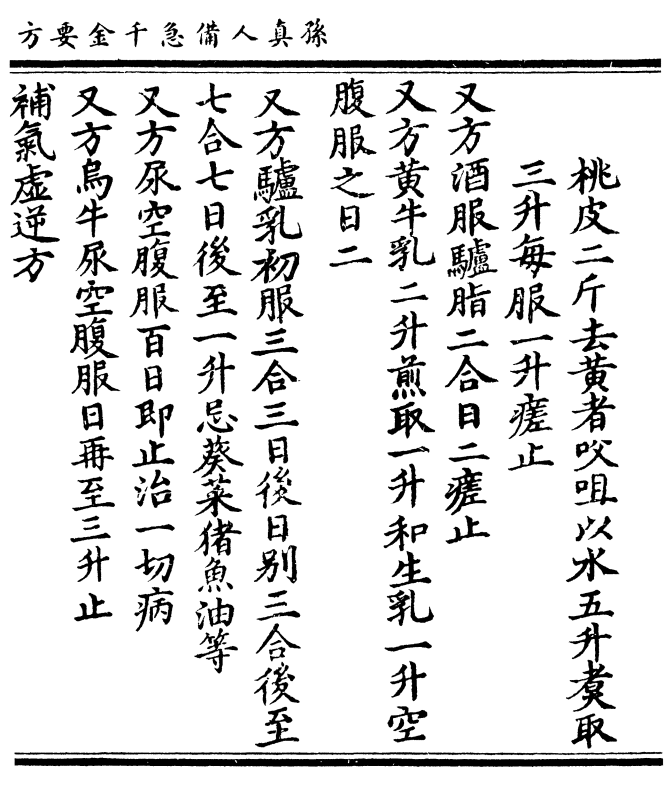 孫真人備急千金要方
桃皮二斤去黄者㕮咀以水五升煑取
三升每服一升瘥止
又方酒服驢脂二合日二瘥止
又方黄牛乳二升煎取一升和生乳一升空
腹服之日二
又方驢乳初服三合三日後日别三合後至
七合七日後至一升忌葵菜猪魚油等
又方尿空腹服百日即止治一切病
又方烏牛尿空腹服日再至三升止
補氣虛逆方